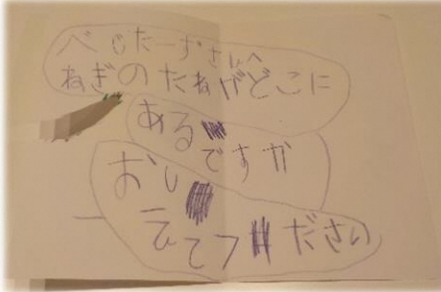 べじたーずさんへ
ねぎのたねがどこに
あるですか
おし
えてください